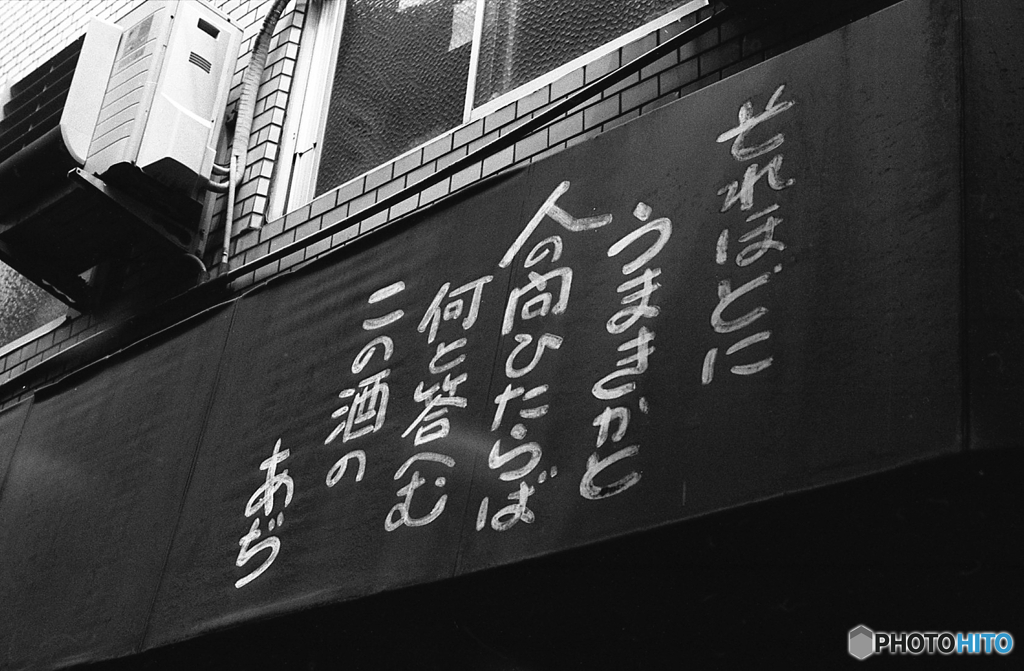 それほどに
うまきかと
人の問ひたらば
何と答へむ
この酒の
あぢ
PHOTOHITO